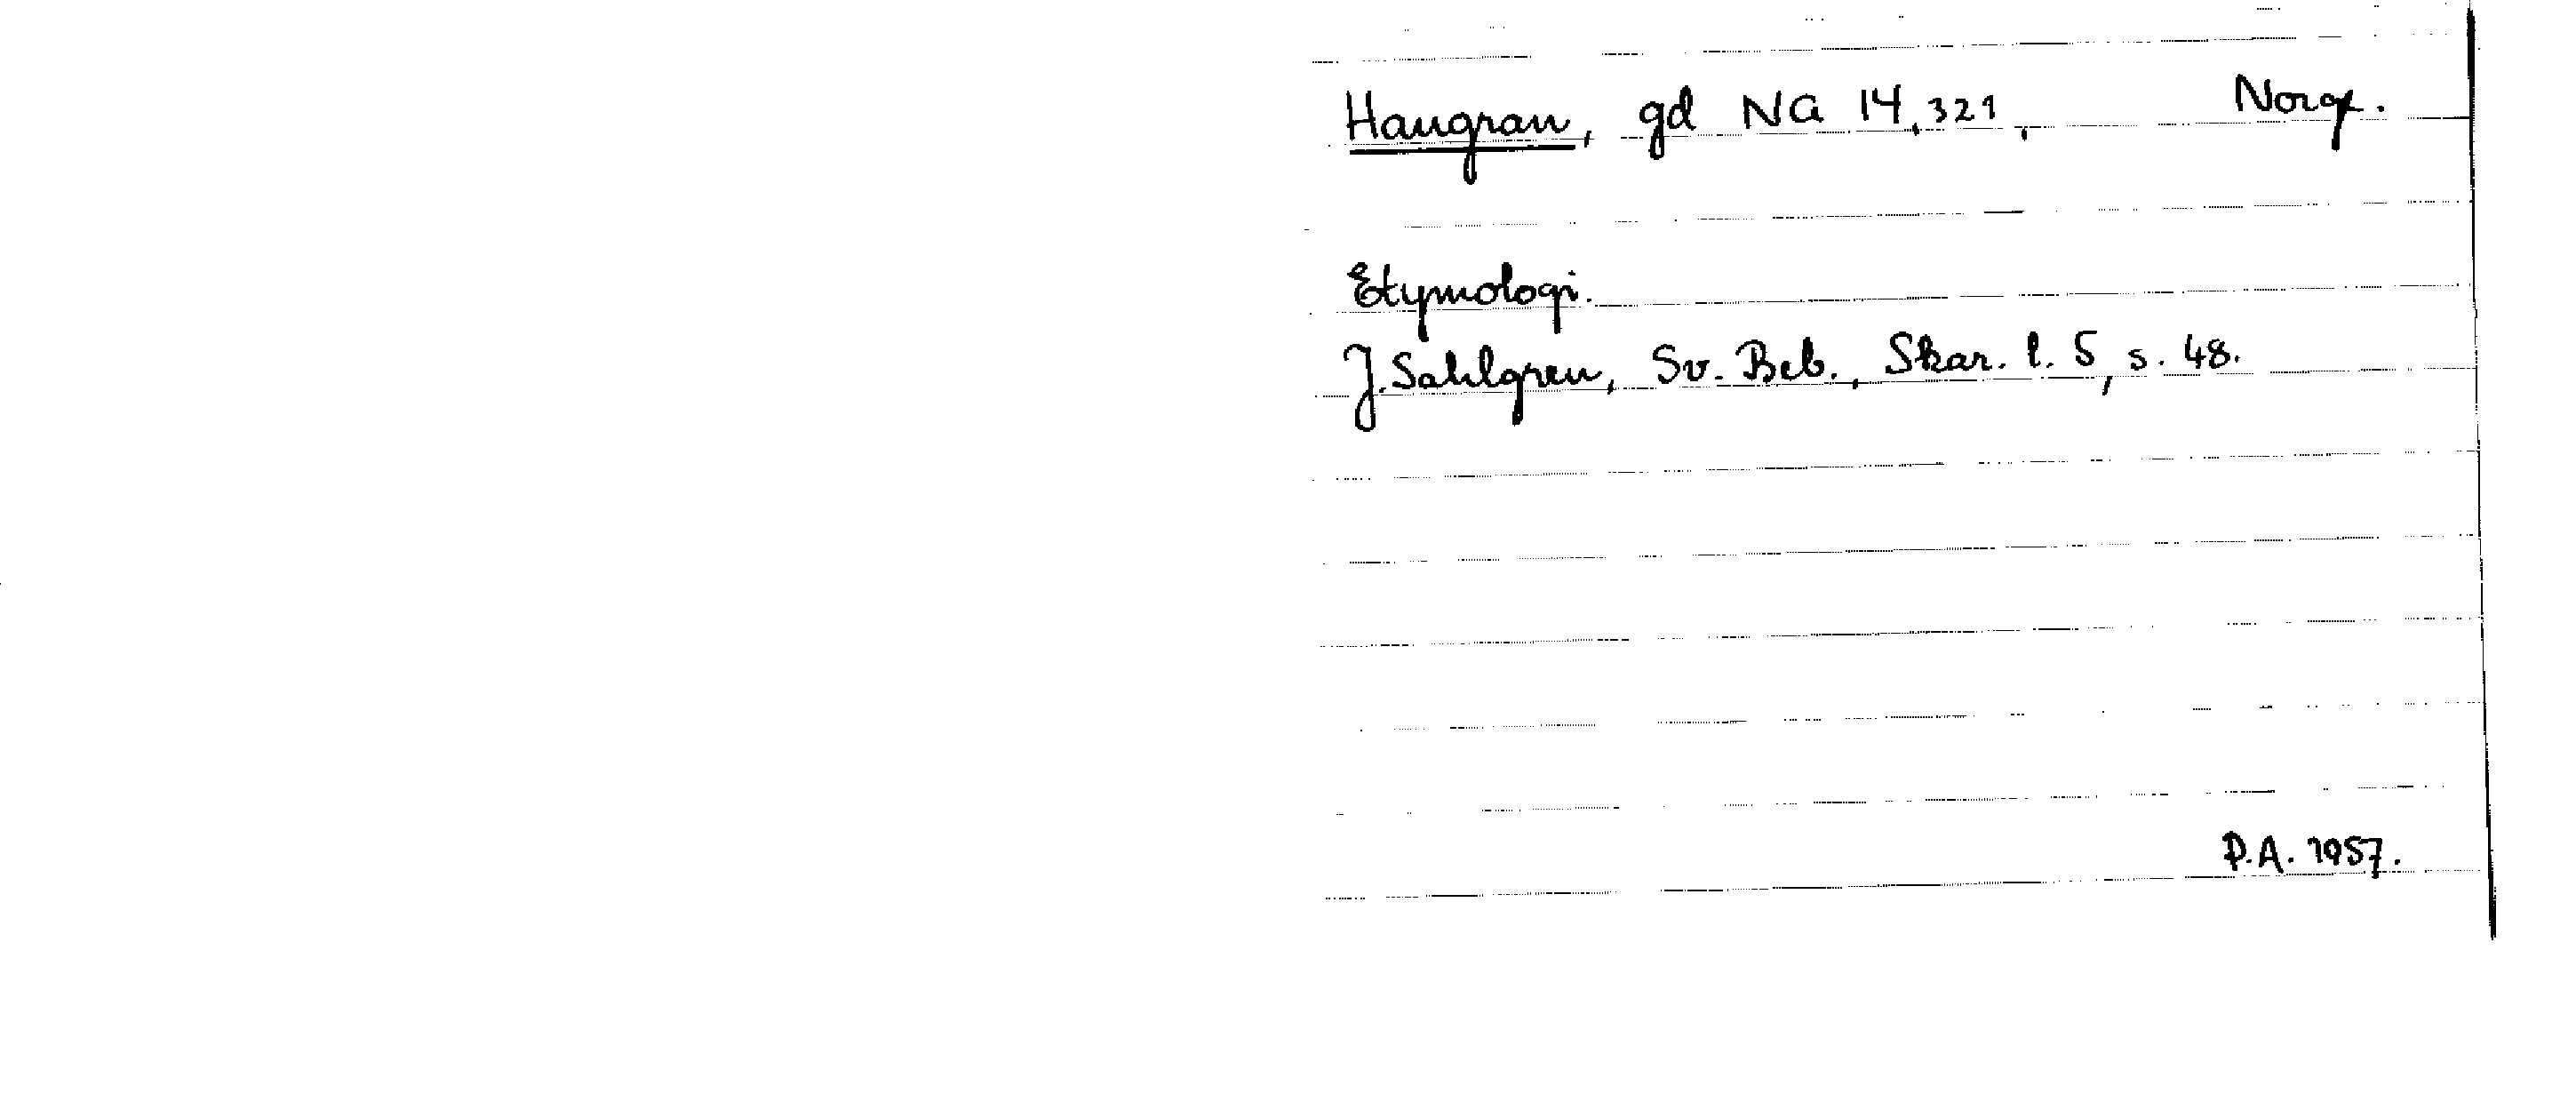 Haugran, gd NG 14,321, Norge.
Etymologi.
J. Sahlgren, Sv. Beb., Skar. l. 5, s. 48.
P.A. 1957.